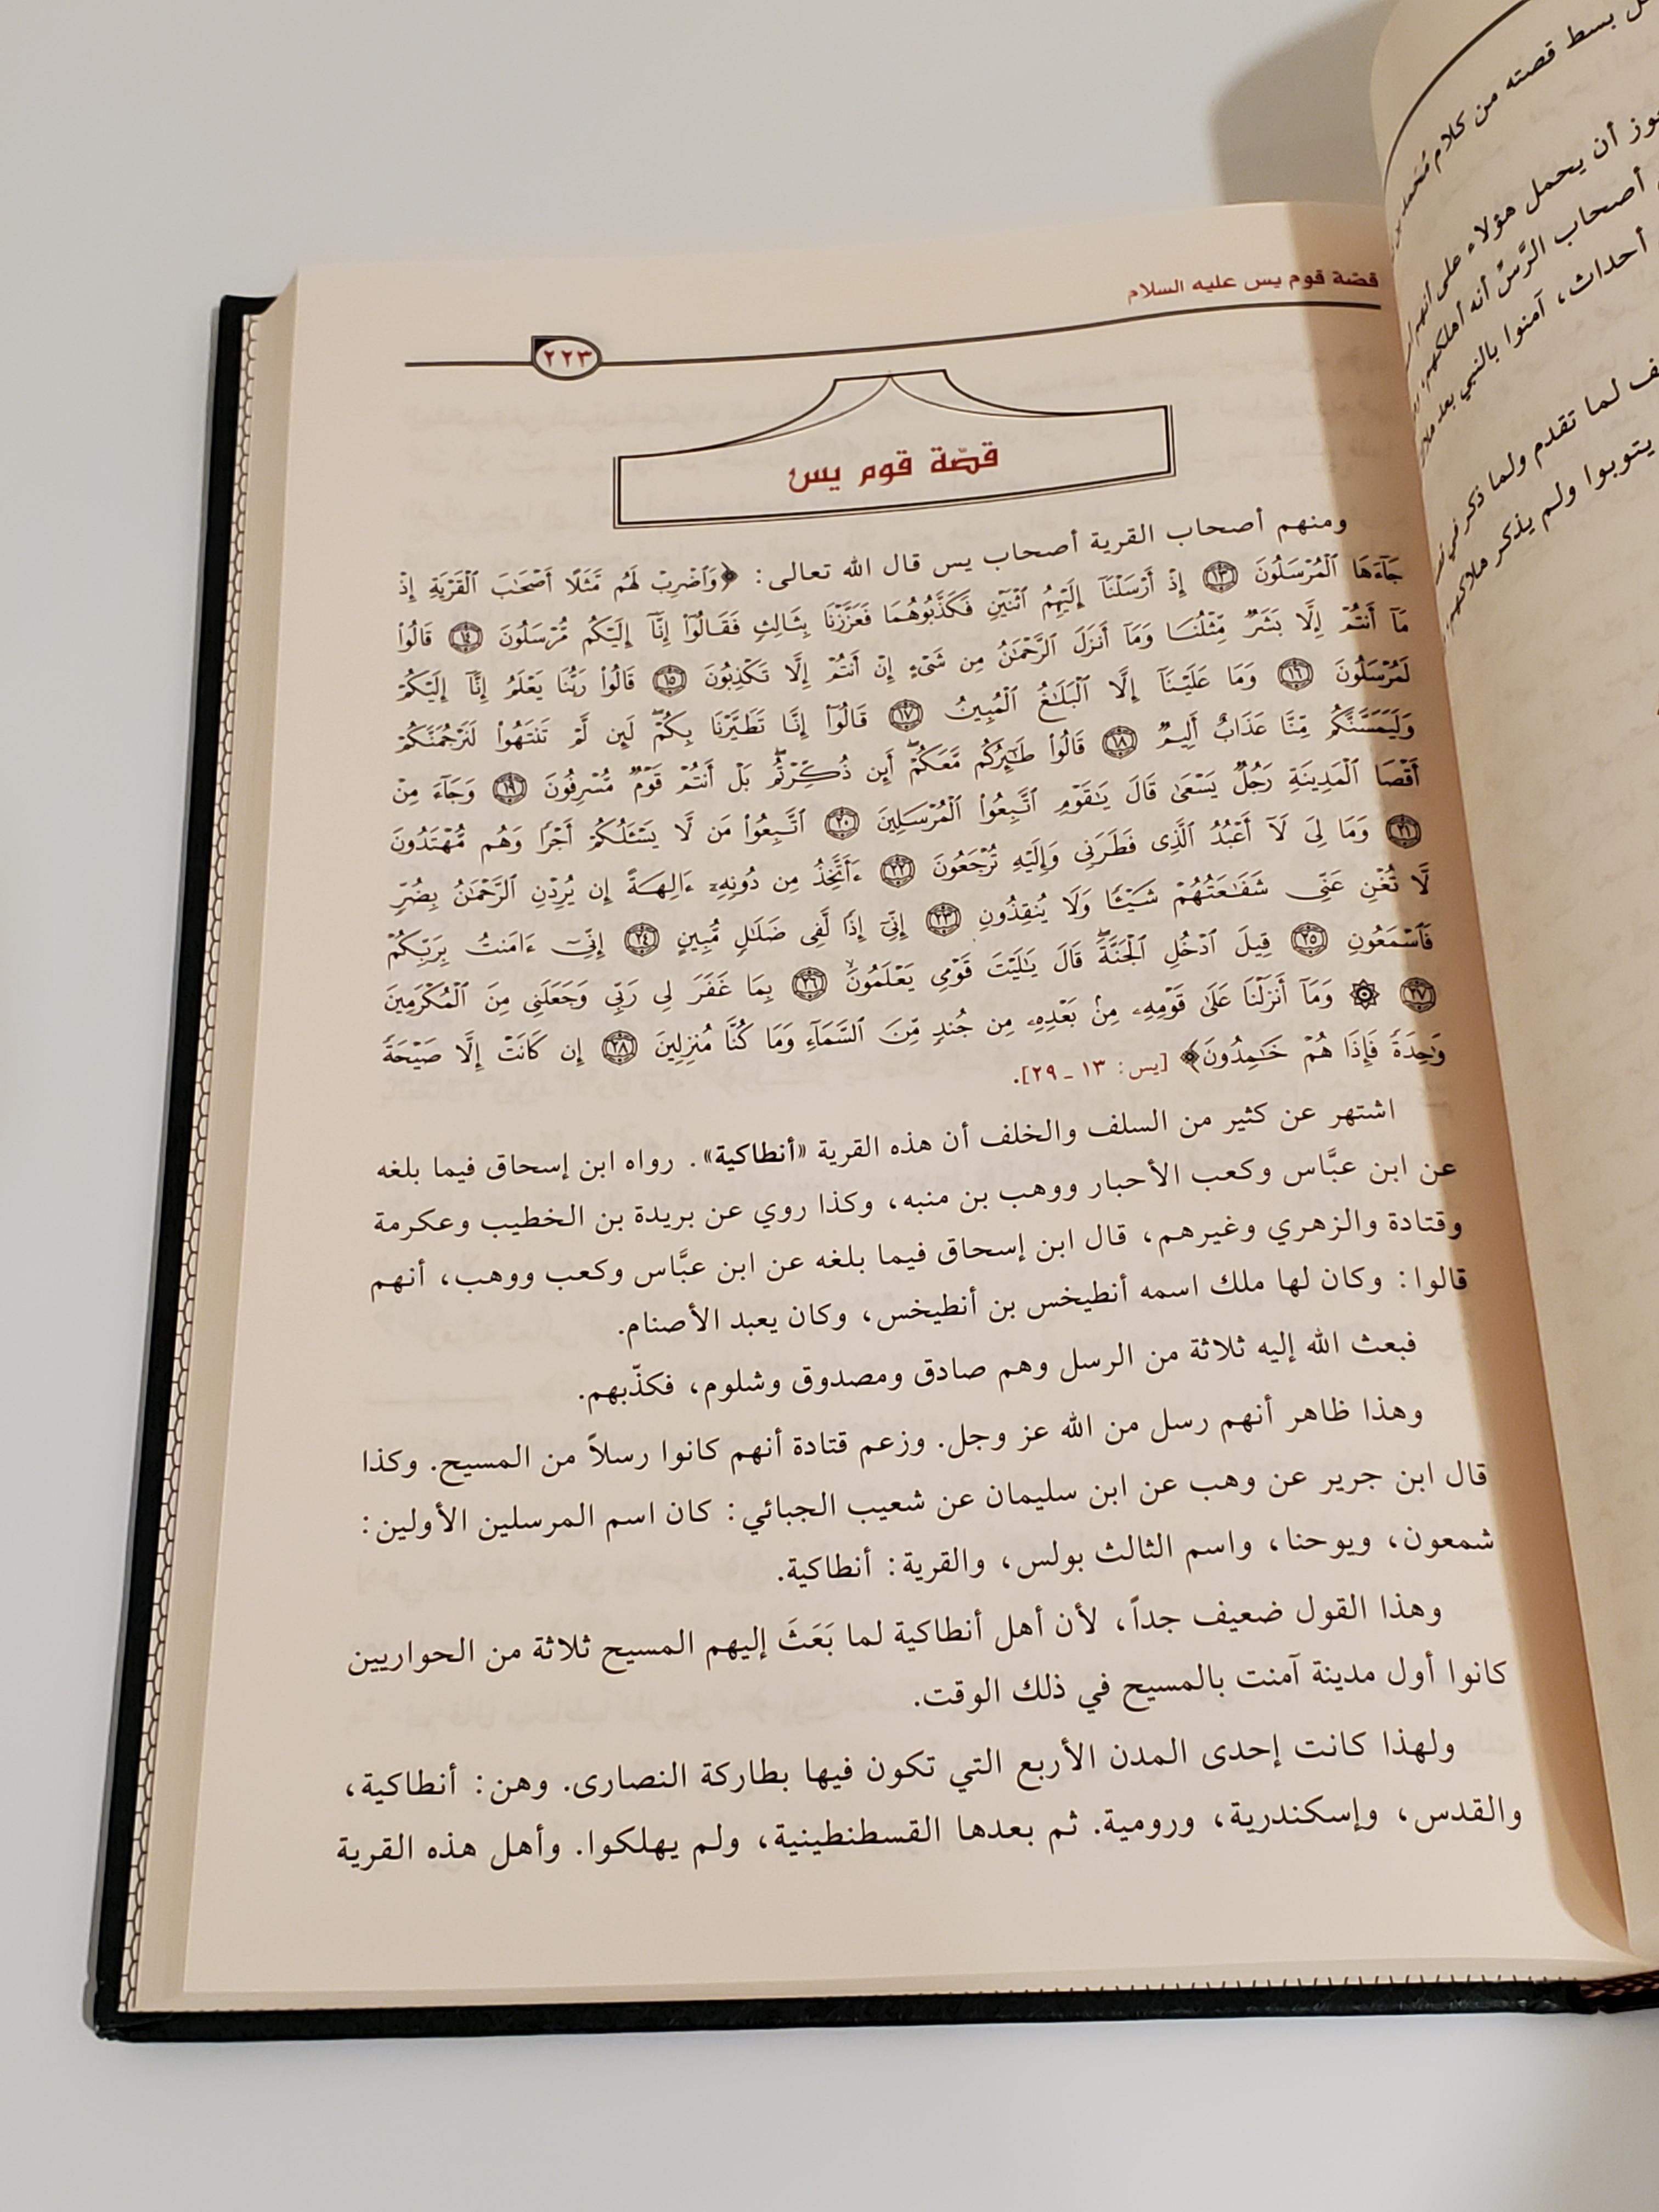 قصّة قوم يس عليه السلام
٢٢٣
قصّة قوم يس
ومنهم أصحاب القرية أصحاب يس قال الله تعالى: ﴿وَٱضْرِبْ لَهُم مَّثَلًا أَصْحَـٰبَ ٱلْقَرْيَةِ إِذْ
جَآءَهَا ٱلْمُرْسَلُونَ ١٣ إِذْ أَرْسَلْنَآ إِلَيْهِمُ ٱثْنَيْنِ فَكَذَّبُوهُمَا فَعَزَّزْنَا بِثَالِثٍ فَقَالُوٓا۟ إِنَّآ إِلَيْكُم مُّرْسَلُونَ ١٤ قَالُوا۟
مَآ أَنتُمْ إِلَّا بَشَرٌ مِّثْلُنَا وَمَآ أَنزَلَ ٱلرَّحْمَـٰنُ مِن شَىْءٍ إِنْ أَنتُمْ إِلَّا تَكْذِبُونَ ١٥ قَالُوا۟ رَبُّنَا يَعْلَمُ إِنَّآ إِلَيْكُمْ
لَمُرْسَلُونَ ١٦ وَمَا عَلَيْنَآ إِلَّا ٱلْبَلَـٰغُ ٱلْمُبِينُ ١٧ قَالُوٓا۟ إِنَّا تَطَيَّرْنَا بِكُمْ ۖ لَئِن لَّمْ تَنتَهُوا۟ لَنَرْجُمَنَّكُمْ
وَلَيَمَسَّنَّكُم مِّنَّا عَذَابٌ أَلِيمٌ ١٨ قَالُوا۟ طَـٰٓئِرُكُم مَّعَكُمْ ۚ أَئِن ذُكِّرْتُم ۚ بَلْ أَنتُمْ قَوْمٌ مُّسْرِفُونَ ١٩ وَجَآءَ مِنْ
أَقْصَا ٱلْمَدِينَةِ رَجُلٌ يَسْعَىٰ قَالَ يَـٰقَوْمِ ٱتَّبِعُوا۟ ٱلْمُرْسَلِينَ ٢٠ ٱتَّبِعُوا۟ مَن لَّا يَسْـَٔلُكُمْ أَجْرًا وَهُم مُّهْتَدُونَ
٢١ وَمَا لِىَ لَآ أَعْبُدُ ٱلَّذِى فَطَرَنِى وَإِلَيْهِ تُرْجَعُونَ ٢٢ ءَأَتَّخِذُ مِن دُونِهِۦٓ ءَالِهَةً إِن يُرِدْنِ ٱلرَّحْمَـٰنُ بِضُرٍّ
لَّا تُغْنِ عَنِّى شَفَـٰعَتُهُمْ شَيْـًٔا وَلَا يُنقِذُونِ ٢٣ إِنِّىٓ إِذًا لَّفِى ضَلَـٰلٍ مُّبِينٍ ٢٤ إِنِّىٓ ءَامَنتُ بِرَبِّكُمْ
فَٱسْمَعُونِ ٢٥ قِيلَ ٱدْخُلِ ٱلْجَنَّةَ ۖ قَالَ يَـٰلَيْتَ قَوْمِى يَعْلَمُونَ ٢٦ بِمَا غَفَرَ لِى رَبِّى وَجَعَلَنِى مِنَ ٱلْمُكْرَمِينَ
٢٧ ۞ وَمَآ أَنزَلْنَا عَلَىٰ قَوْمِهِۦ مِنۢ بَعْدِهِۦ مِن جُندٍ مِّنَ ٱلسَّمَآءِ وَمَا كُنَّا مُنزِلِينَ ٢٨ إِن كَانَتْ إِلَّا صَيْحَةً
وَٰحِدَةً فَإِذَا هُمْ خَـٰمِدُونَ﴾ [يس: ١٣ ـ ٢٩].
اشتهر عن كثير من السلف والخلف أن هذه القرية «أنطاكية». رواه ابن إسحاق فيما بلغه
عن ابن عبَّاس وكعب الأحبار ووهب بن منبه، وكذا روي عن بريدة بن الخطيب وعكرمة
وقتادة والزهري وغيرهم، قال ابن إسحاق فيما بلغه عن ابن عبَّاس وكعب ووهب، أنهم
قالوا: وكان لها ملك اسمه أنطيخس بن أنطيخس، وكان يعبد الأصنام.
فبعث الله إليه ثلاثة من الرسل وهم صادق ومصدوق وشلوم، فكذّبهم.
وهذا ظاهر أنهم رسل من الله عز وجل. وزعم قتادة أنهم كانوا رسلاً من المسيح. وكذا
قال ابن جرير عن وهب عن ابن سليمان عن شعيب الجبائي: كان اسم المرسلين الأولين:
شمعون، ويوحنا، واسم الثالث بولس، والقرية: أنطاكية.
وهذا القول ضعيف جداً، لأن أهل أنطاكية لما بَعَثَ إليهم المسيح ثلاثة من الحواريين
كانوا أول مدينة آمنت بالمسيح في ذلك الوقت.
ولهذا كانت إحدى المدن الأربع التي تكون فيها بطاركة النصارى. وهن: أنطاكية،
والقدس، وإسكندرية، ورومية. ثم بعدها القسطنطينية، ولم يهلكوا. وأهل هذه القرية
بسط قصته من كلام محمد بن
أن يحمل هؤلاء على أنهم
أصحاب الرَّسِّ أنه أهلكهم،
أحداث، آمنوا بالنبي بعد
لما تقدم ولما ذكر في
يتوبوا ولم يذكر هلاكهم،